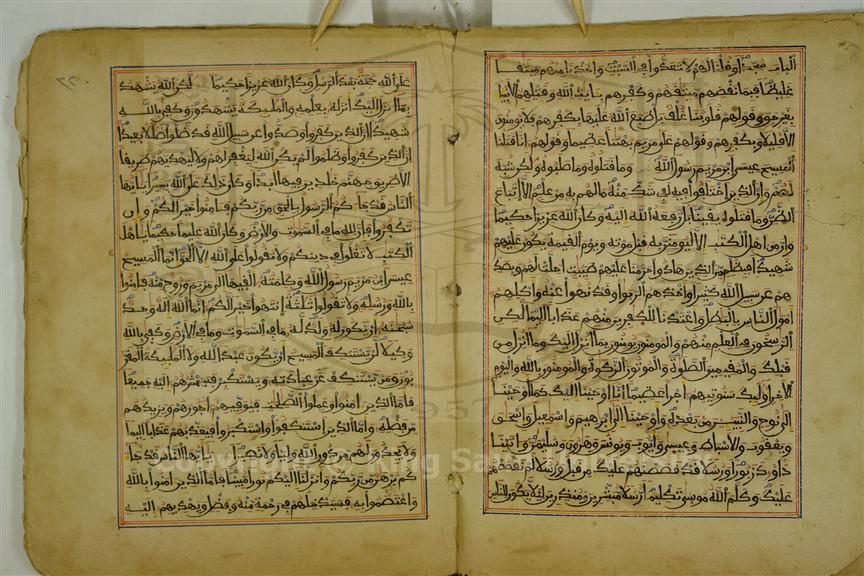 الباب سجدا وقلنا لهم لا تعدوا في السبت واخذنا منهم ميثقا
غليظا فبما نقضهم ميثقهم وكفرهم بايت الله وقتلهم الانبيا
بغير حق وقولهم قلوبنا غلف بل طبع الله عليها بكفرهم فلا يومنون
الا قليلا وبكفرهم وقولهم على مريم بهتنا عظيما وقولهم انا قتلنا
المسيح عيسى ابن مريم رسول الله وما قتلوه وما صلبوه ولكن شبه
لهم وان الذين اختلفوا فيه لفي شك منه ما لهم به من علم الا اتباع
الظن وما قتلوه يقينا بل رفعه الله اليه وكان الله عزيزا حكيما
وان من اهل الكتب الا ليومنن به قبل موته ويوم القيمة يكون عليهم
شهيدا فبظلم من الذين هادوا حرمنا عليهم طيبت احلت لهم وبصد
هم عن سبيل الله كثيرا واخذهم الربوا وقد نهوا عنه واكلهم
امول الناس بالبطل واعتدنا للكفرين منهم عذابا اليما لكن
الرسخون في العلم منهم والمومنون يومنون بما انزل اليك وما انزل من
قبلك والمقيمين الصلوة والموتون الزكوة والمومنون بالله واليوم
الاخر اوليك سنوتيهم اجرا عظيما انا اوحينا اليك كما اوحينا
الى نوح والنبيين من بعده واوحينا الى ابرهيم واسمعيل واسحق
ويعقوب والاسباط وعيسى وايوب ويونس وهرون وسليمن واتينا
داود زبورا ورسلا قد قصصنهم عليك من قبل ورسلا لم نقصصهم
عليك وكلم الله موسى تكليما رسلا مبشرين ومنذرين ليلا يكون للناس
على الله حجة بعد الرسل وكان الله عزيزا حكيما لكن الله يشهد
بما انزل اليك انزله بعلمه والمليكة يشهدون وكفى بالله
شهيدا ان الذين كفروا وصدوا عن سبيل الله قد ضلوا ضللا بعيدا
ان الذين كفروا وظلموا لم يكن الله ليغفر لهم ولا ليهديهم طريقا
الا طريق جهنم خلدين فيها ابدا وكان ذلك على الله يسيرا يايها
الناس قد جاكم الرسول بالحق من ربكم فامنوا خيرا لكم وان
تكفروا فان لله ما في السموت والارض وكان الله عليما حكيما ياهل
الكتب لا تغلوا في دينكم ولا تقولوا على الله الا الحق انما المسيح
عيسى ابن مريم رسول الله وكلمته القيها الى مريم وروح منه فامنوا
بالله ورسله ولا تقولوا ثلثة انتهوا خيرا لكم انما الله اله وحد
سبحنه ان يكون له ولد له ما في السموت وما في الارض وكفى بالله
وكيلا لن يستنكف المسيح ان يكون عبدا لله ولا المليكة المقر
بون ومن يستنكف عن عبادته ويستكبر فسيحشرهم اليه جميعا
فاما الذين امنوا وعملوا الصلحت فيوفيهم اجورهم ويزيدهم
من فضله واما الذين استنكفوا واستكبروا فيعذبهم عذابا اليما
ولا يجدون لهم من دون الله وليا ولا نصيرا يايها الناس قد جا
كم برهن من ربكم وانزلنا اليكم نورا مبينا فاما الذين امنوا بالله
واعتصموا به فسيدخلهم في رحمة منه وفضل ويهديهم اليه